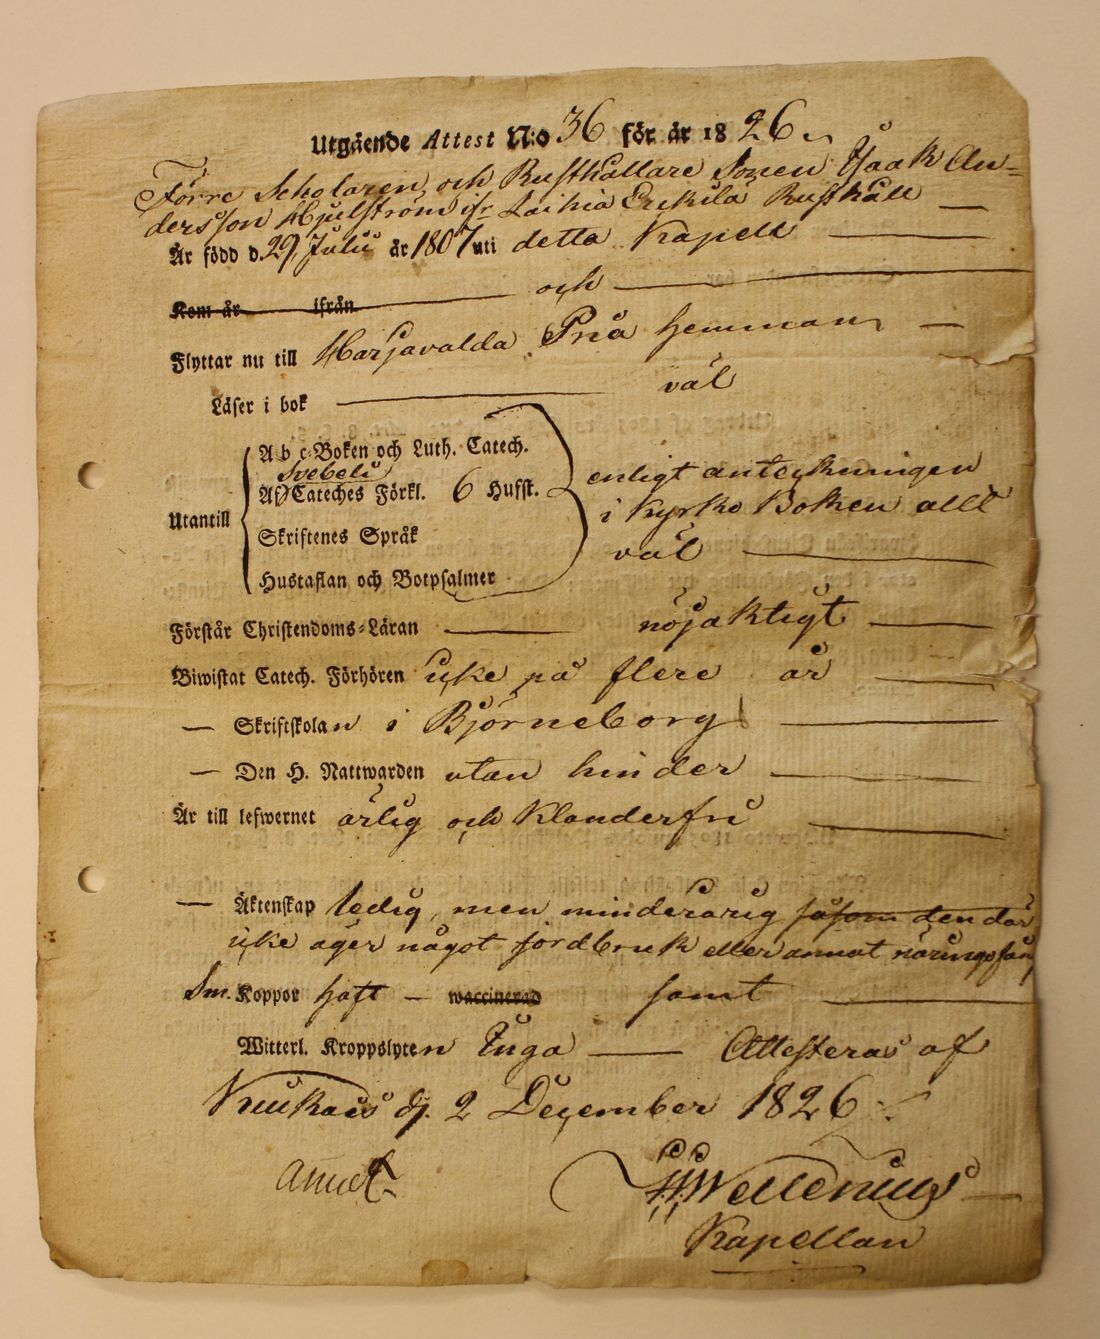 Utgående Attest N:o 36 för år 1826
Förre Scholaren och Rusthållare Sonen Isaak An=
dersson Hjulström ifr Laihia Erkilä Rusthåll —
Är född d. 29 Julii år 1807 uti detta Kapell —
Kom år ifrån och —
Flyttar nu till Harjavalda Pria hemman —
Läser i bok — väl
Utantill
A b c-Boken och Luth. Catech.
Svebelii
Af Cateches Förkl. 6 Hufst.
Skriftenes Språk
Hustaflan och Botpsalmer
enligt anteckningen
i Kyrko Boken allt
väl —
Förstår Christendoms-Läran — nöjaktigt —
Biwistat Catech. Förhören icke på flere år —
— Skriftskolan i Björneborg —
— Den H. Nattwarden utan hinder —
Är till lefwernet ärlig och klanderfri —
— Äktenskap ledig, men minderårig såsom den der
icke äger något jordbruk eller annat näringsfång
Sm. Koppor haft — waccinerad samt —
Witterl. Kroppslyten Inga — Attesteras af
d. 2 December 1826
Wellenius
Kapellan